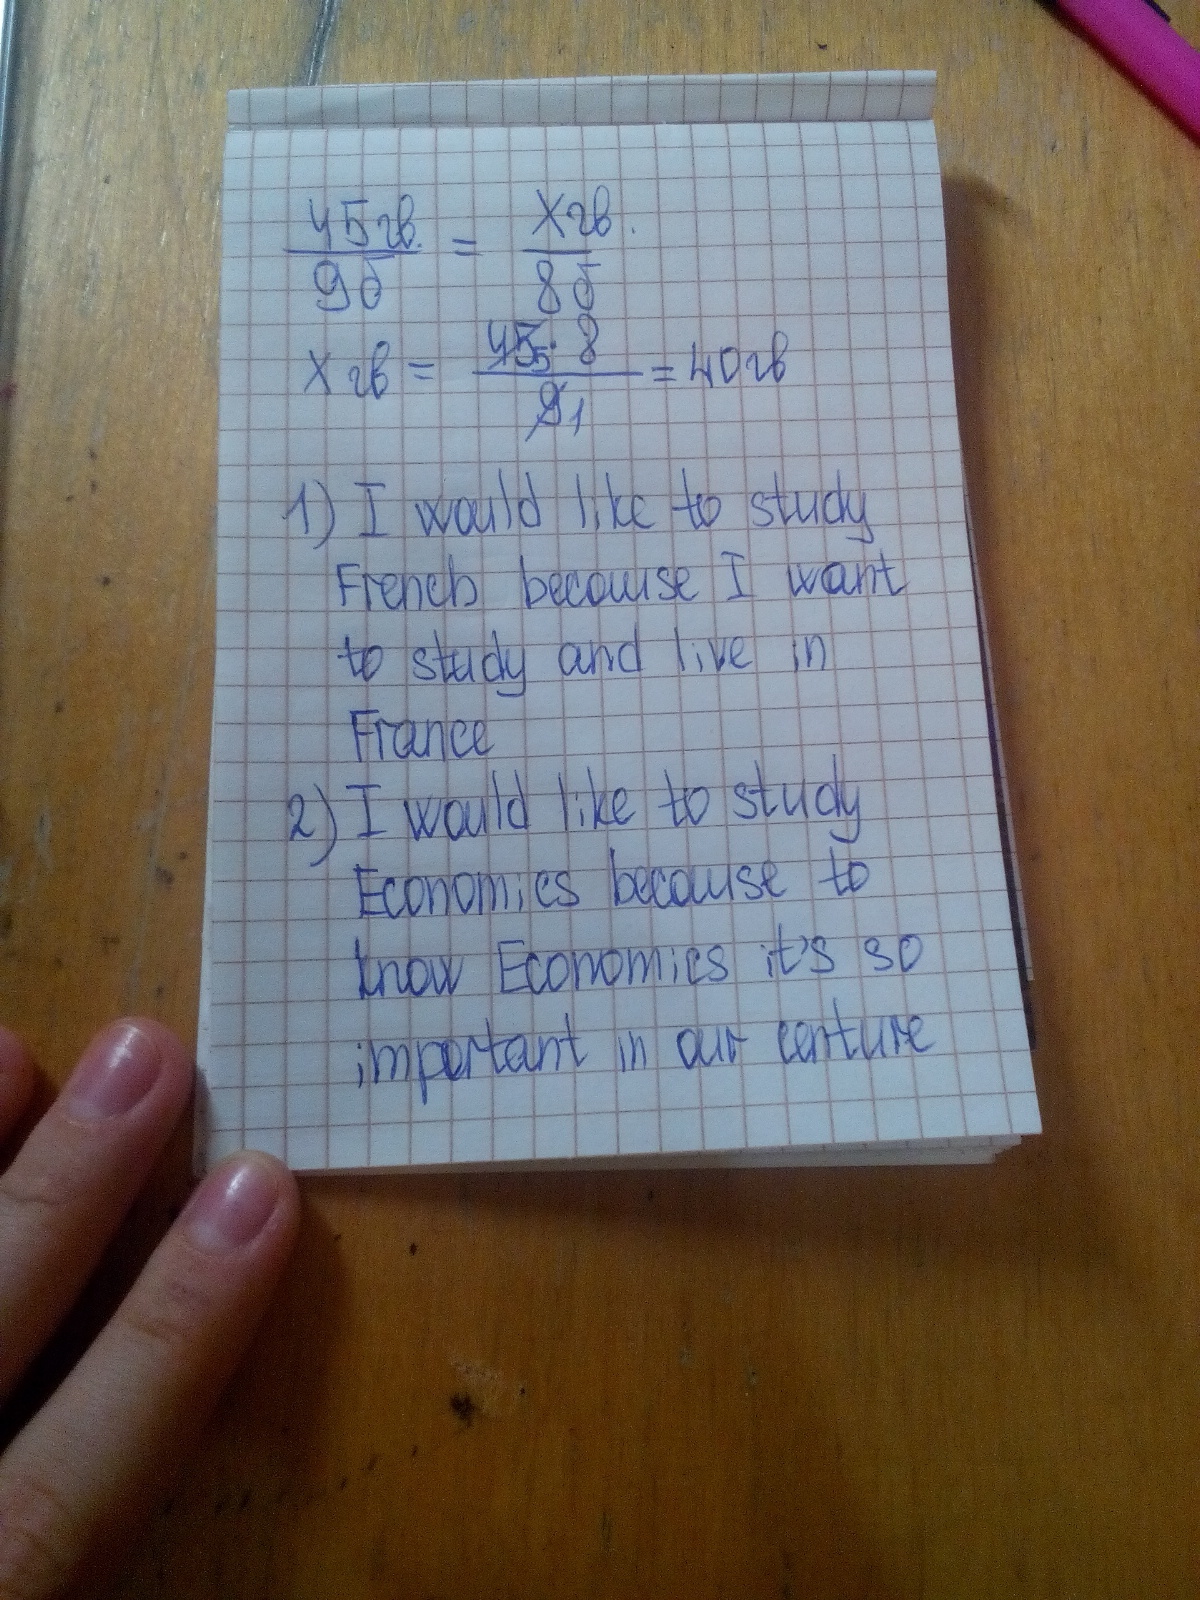 45 гв. = X гв.
9б 8б
X гв = 45 5 · 8 = 40 гв
9 1
1) I would like to study
French becouse I want
to study and live in
France
2) I would like to study
Economics becouse to
know Economics it's so
important in our centure